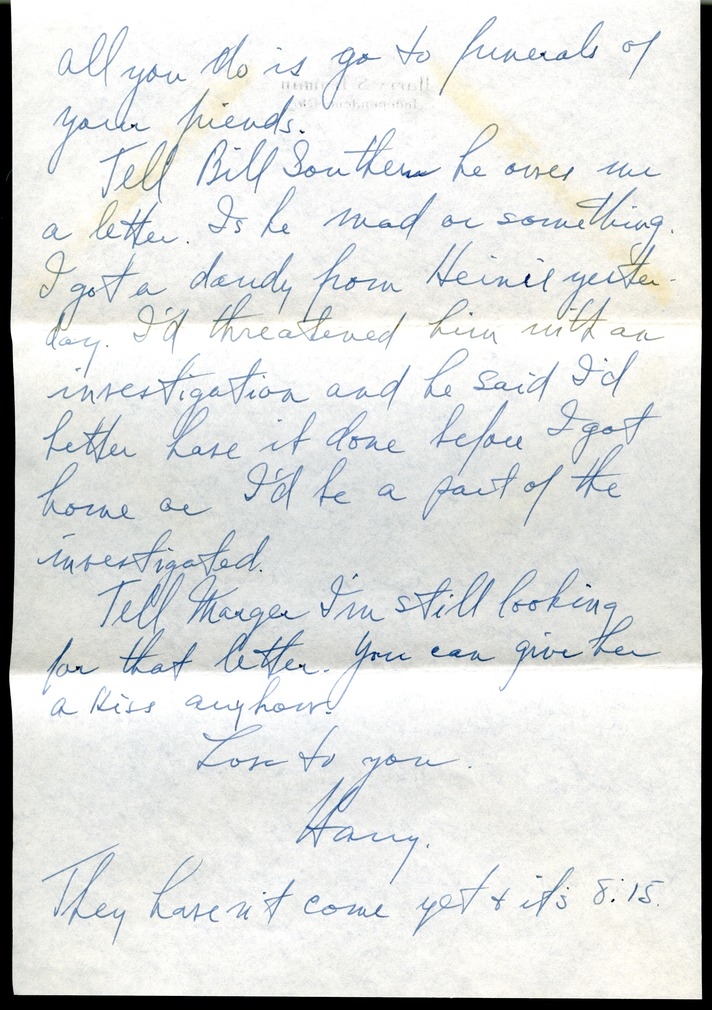 all you do is go to funerals of
your friends.
Tell Bill Southern he owes me
a letter. Is he mad or something.
I got a dandy from Heinie yester-
day. I'd threatened him with an
investigation and he said I'd
better have it done before I got
home or I'd be a part of the
investigated.
Tell Marger I'm still looking
for that letter. You can give her
a kiss anyhow.
Love to you.
Harry.
They haven't come yet & it's 8:15.